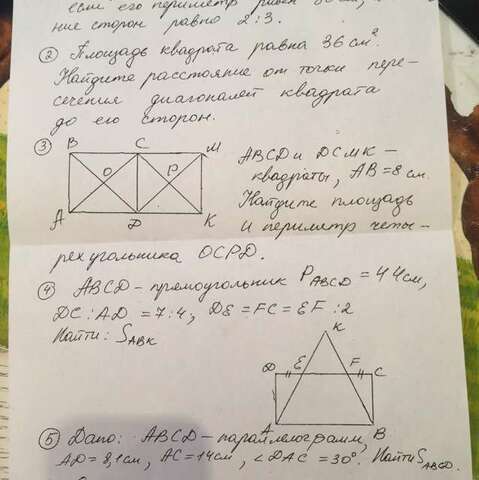 если его периметр равен
ние сторон равно 2:3.
② Площадь квадрата равна 36 см².
Найдите расстояние от точки пере-
сечения диагоналей квадрата
до его сторон.
③ B C M
O P
A D K
ABCD и DCMK –
квадраты, AB = 8 см.
Найдите площадь
и периметр четы-
рехугольника OCPD.
④ ABCD – прямоугольник P ABCD = 44 см,
DC : AD = 7:4, DE = FC = EF : 2
Найти: S ABK
K
D E F C
A B
⑤ Дано: ABCD – параллелограмм,
AD = 8,1 см, AC = 14 см, ∠DAC = 30°. Найти S ABCD.